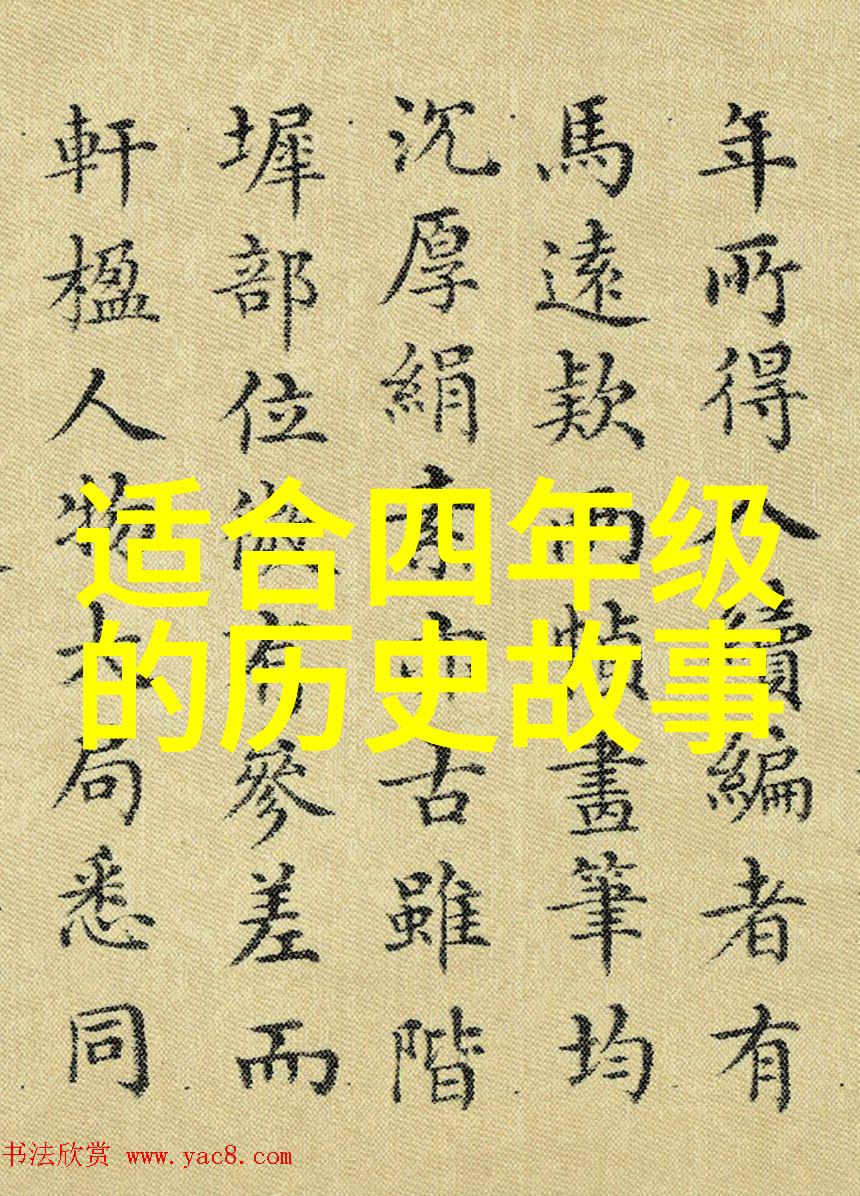 年所得入續編者有
馬遠款兩幀畫筆均
沉厚絹素亦古雖階
墀部位微有參差而
軒楹人物大局悉同
适合四年级
的历史故事
书法欣赏 www.yac8.com